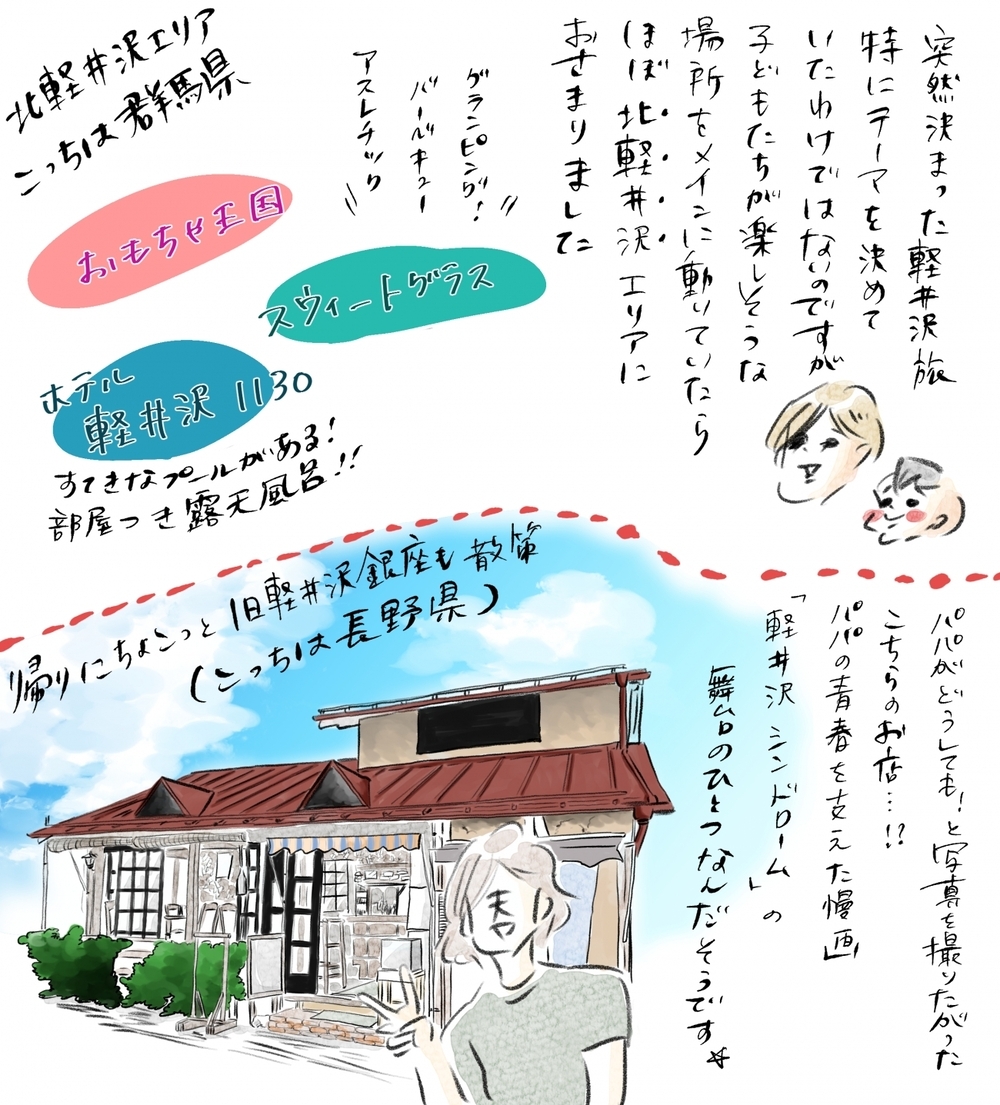 突然決まった軽井沢旅
特にテーマを決めて
いたわけではないのですが
子どもたちが楽しそうな
場所をメインに動いていたら
ほぼ北軽井沢エリアに
おさまりまして
グランピング!
バーベキュー
アスレチック
北軽井沢エリア
こっちは群馬県
おもちゃ王国
スウィートグラス
ホテル
軽井沢1130
すてきなプールがある!
部屋つき露天風呂!!
帰りにちょこっと旧軽井沢銀座も散策
(こっちは長野県)
パパがどうしても!と写真を撮りたがった
こちらのお店…!?
パパの青春を支えた慢画
「軽井沢シンドローム」の
舞台のひとつなんだそうです
夫や